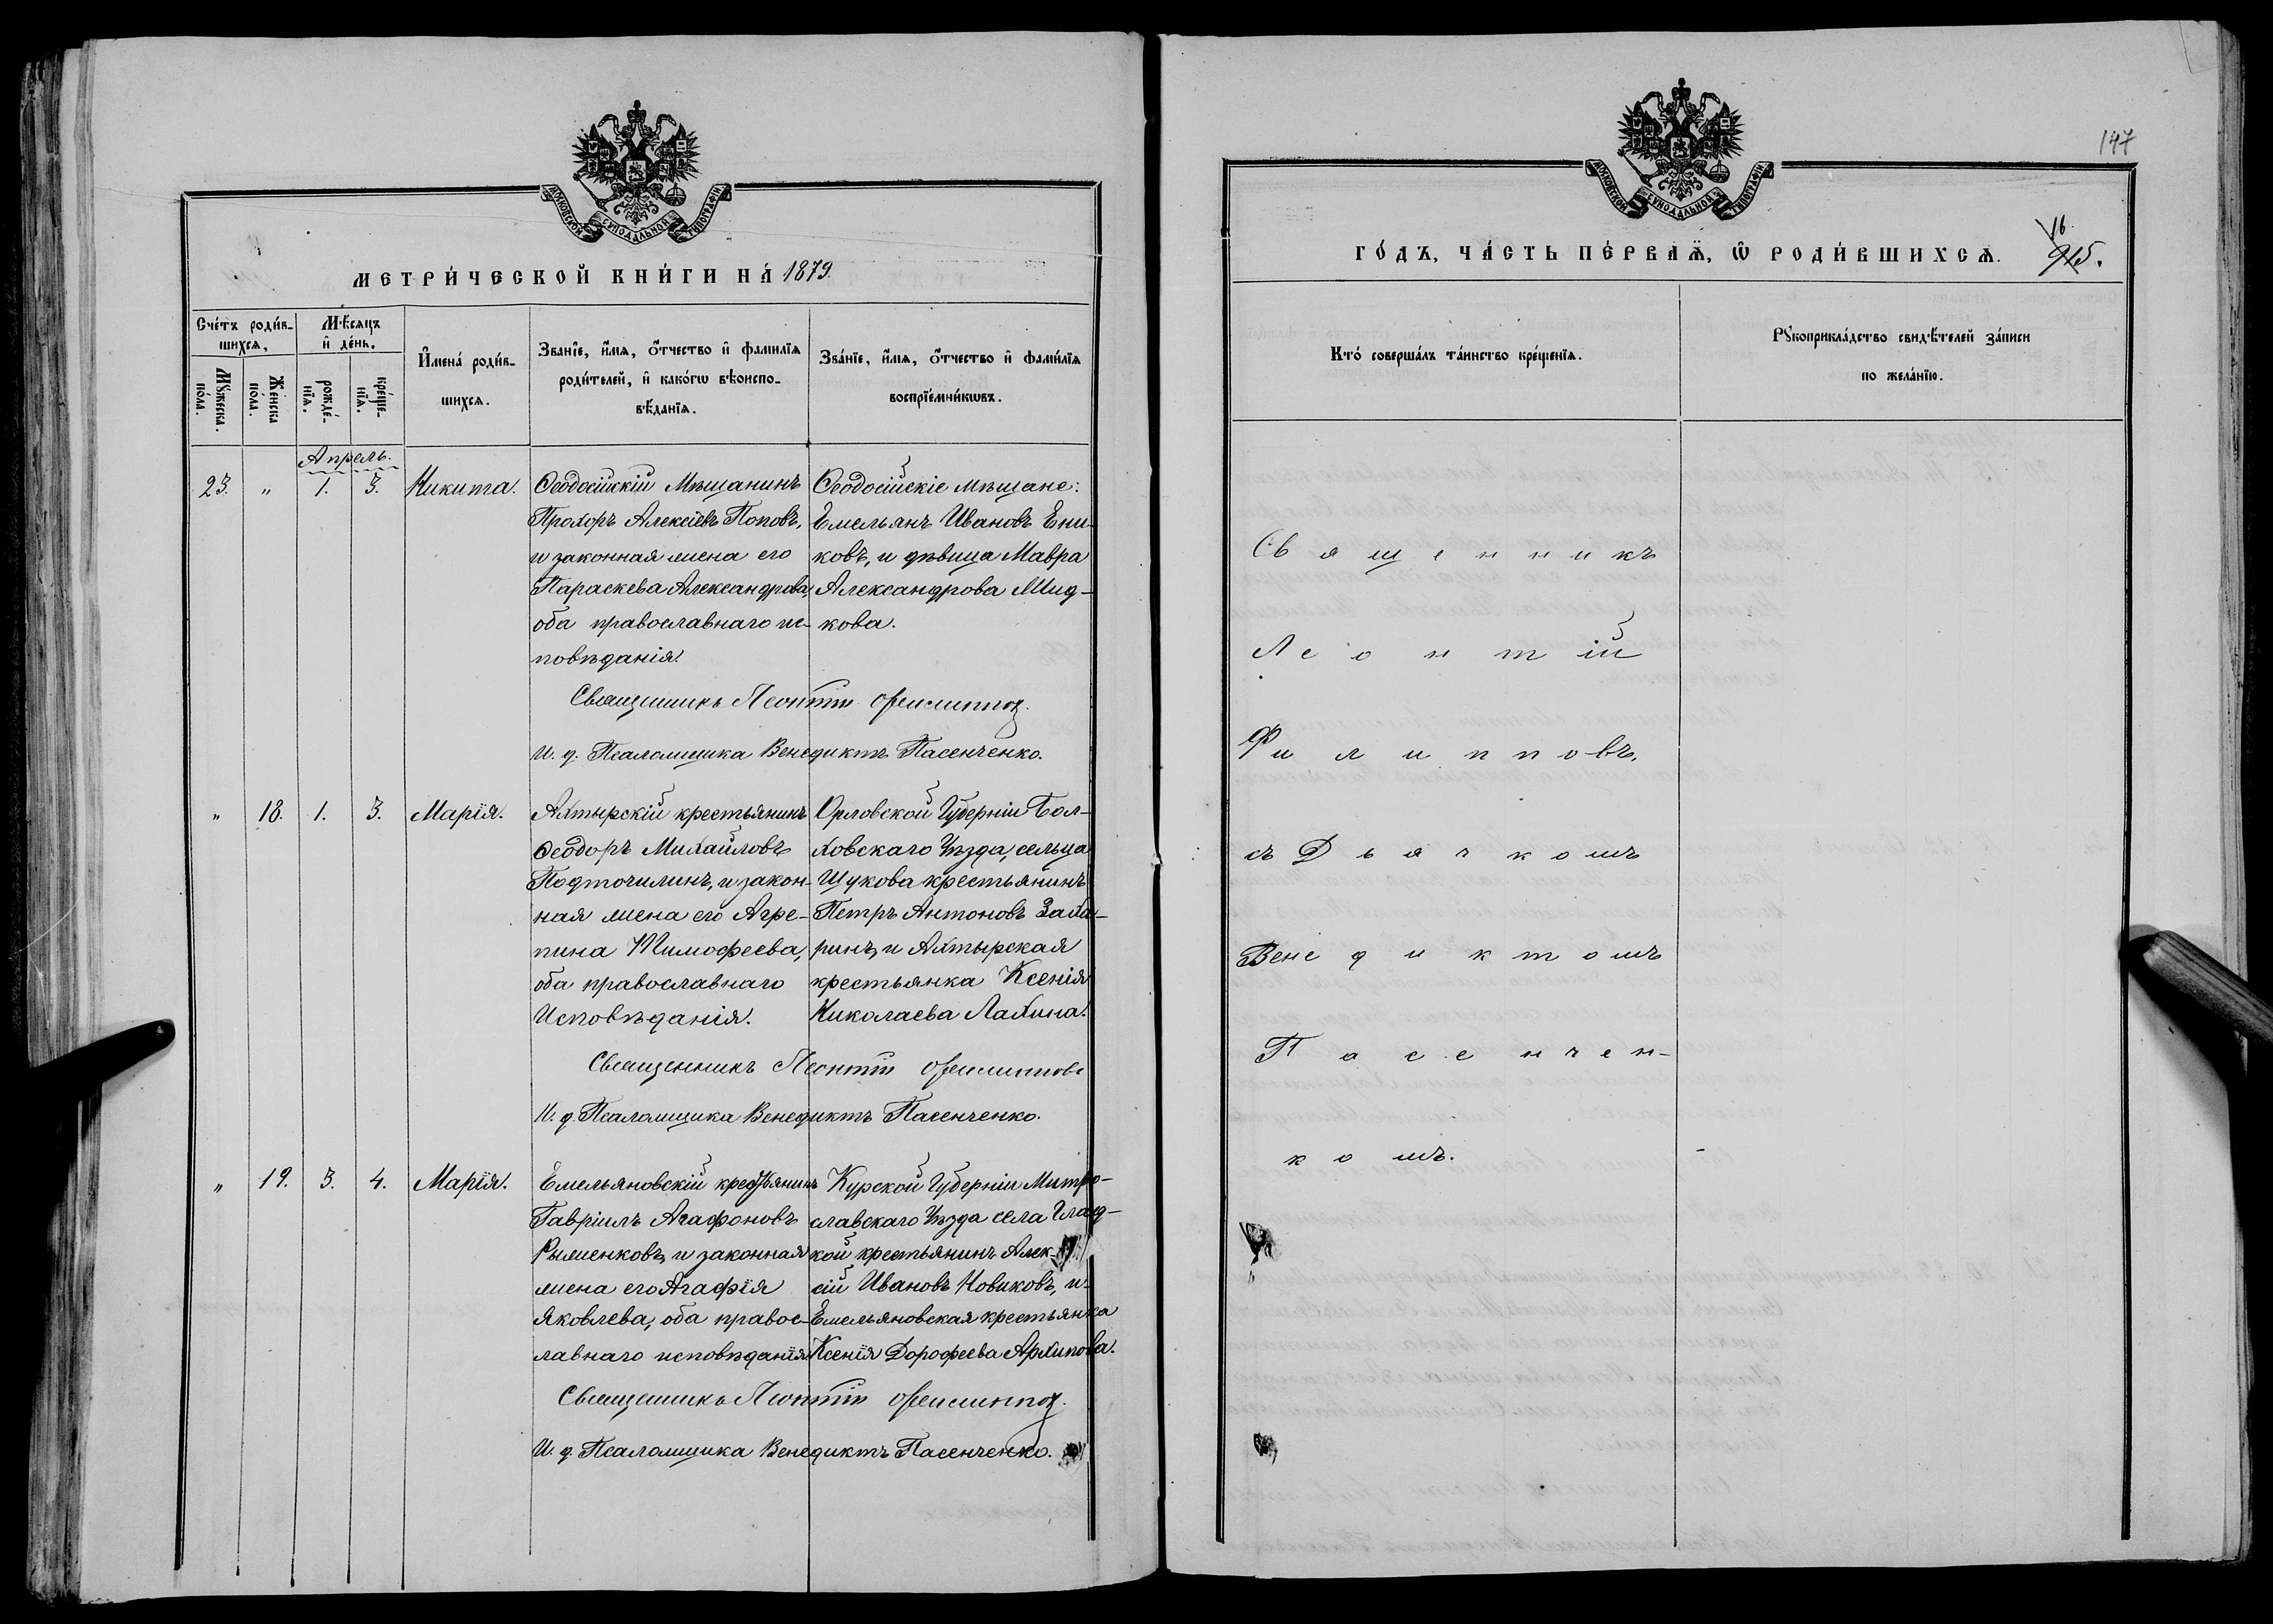 МОСКОВСКОЙ СУНОДАЛЬНОЙ ТИПОГРАФІИ
МЕТРИ́ЧЕСКОЙ КНИ́ГИ НА́ 1879.
Сче́тъ роди́в-
шихсѧ,
Мꙋ́жеска по́ла.
Же́нска по́ла.
Мѣ́сѧцъ
и҆ де́нь.
рожде́-
нїѧ.
креще́-
нїѧ.
И҆мена́ роди́в-
шихсѧ.
Зва́нїе, и҆́мѧ, ѻ҆́тчество и҆ фами́лїѧ
роди́телей, и҆ како́гѡ вѣроиспо-
вѣ́данїѧ.
Зва́нїе, и҆́мѧ, ѻ҆́тчество и҆ фами́лїѧ
воспрїе́мникѡвъ.
Апрѣль.
23. " 1. 3. Никита.
Ѳеодосійскій Мѣщанинъ
Прохоръ Алексіевъ Поповъ,
и законная жена его
Параскева Александрова,
оба православнаго ис-
повѣданія.
Ѳеодосійскіе мѣщане:
Емельянъ Ивановъ Ени-
ковъ, и дѣвица Мавра
Александрова Жид-
кова.
Священникъ Леонтій Филиппов
И. д. Псаломщика Венедиктъ Пасенченко.
" 18. 1. 3. Марія.
Ахтырскій крестьянинъ
Ѳеодоръ Михайловъ
Подточилинъ, и закон-
ная жена его Агре-
пина Тимофеева,
оба православнаго
Исповѣданія.
Орловской Губерніи Бол-
ховскаго Уѣзда, сельца
Щукова крестьянинъ
Петръ Антоновъ Заха-
ринъ, и Ахтырская
крестьянка Ксенія
Николаева Лахина.
Священникъ Леонтій Филипповъ
И. д. Псаломщика Венедиктъ Пасенченко.
" 19. 3. 4. Марія.
Емельяновскій крестьянинъ
Гавріилъ Агафоновъ
Рыженковъ, и законная
жена его Агафія
Яковлева, оба правос-
лавнаго исповѣданія
Курской Губерніи Митро-
славскаго Уѣзда села Глад-
кой крестьянинъ Алек-
сій Ивановъ Новиковъ, и
Емельяновская крестьянка
Ксенія Дорофеева Архипова.
Священникъ Леонтій Филиппов
И. д. Псаломщика Венедиктъ Пасенченко.
147
МОСКОВСКОЙ СУНОДАЛЬНОЙ ТИПОГРАФІИ
ГО́ДЪ, ЧА́СТЬ ПЕ́РВАѦ, Ѡ҆ РОДИ́ВШИХСѦ.
16.
915.
Кто́ соверша́лъ та́инство креще́нїѧ.
Рꙋкоприкла́дство свидѣ́телей за́писи
по жела́нїю.
Священникъ
Леонтій
Филипповъ,
съ Дьячкомъ
Венедиктомъ
Пасенчен-
комъ.